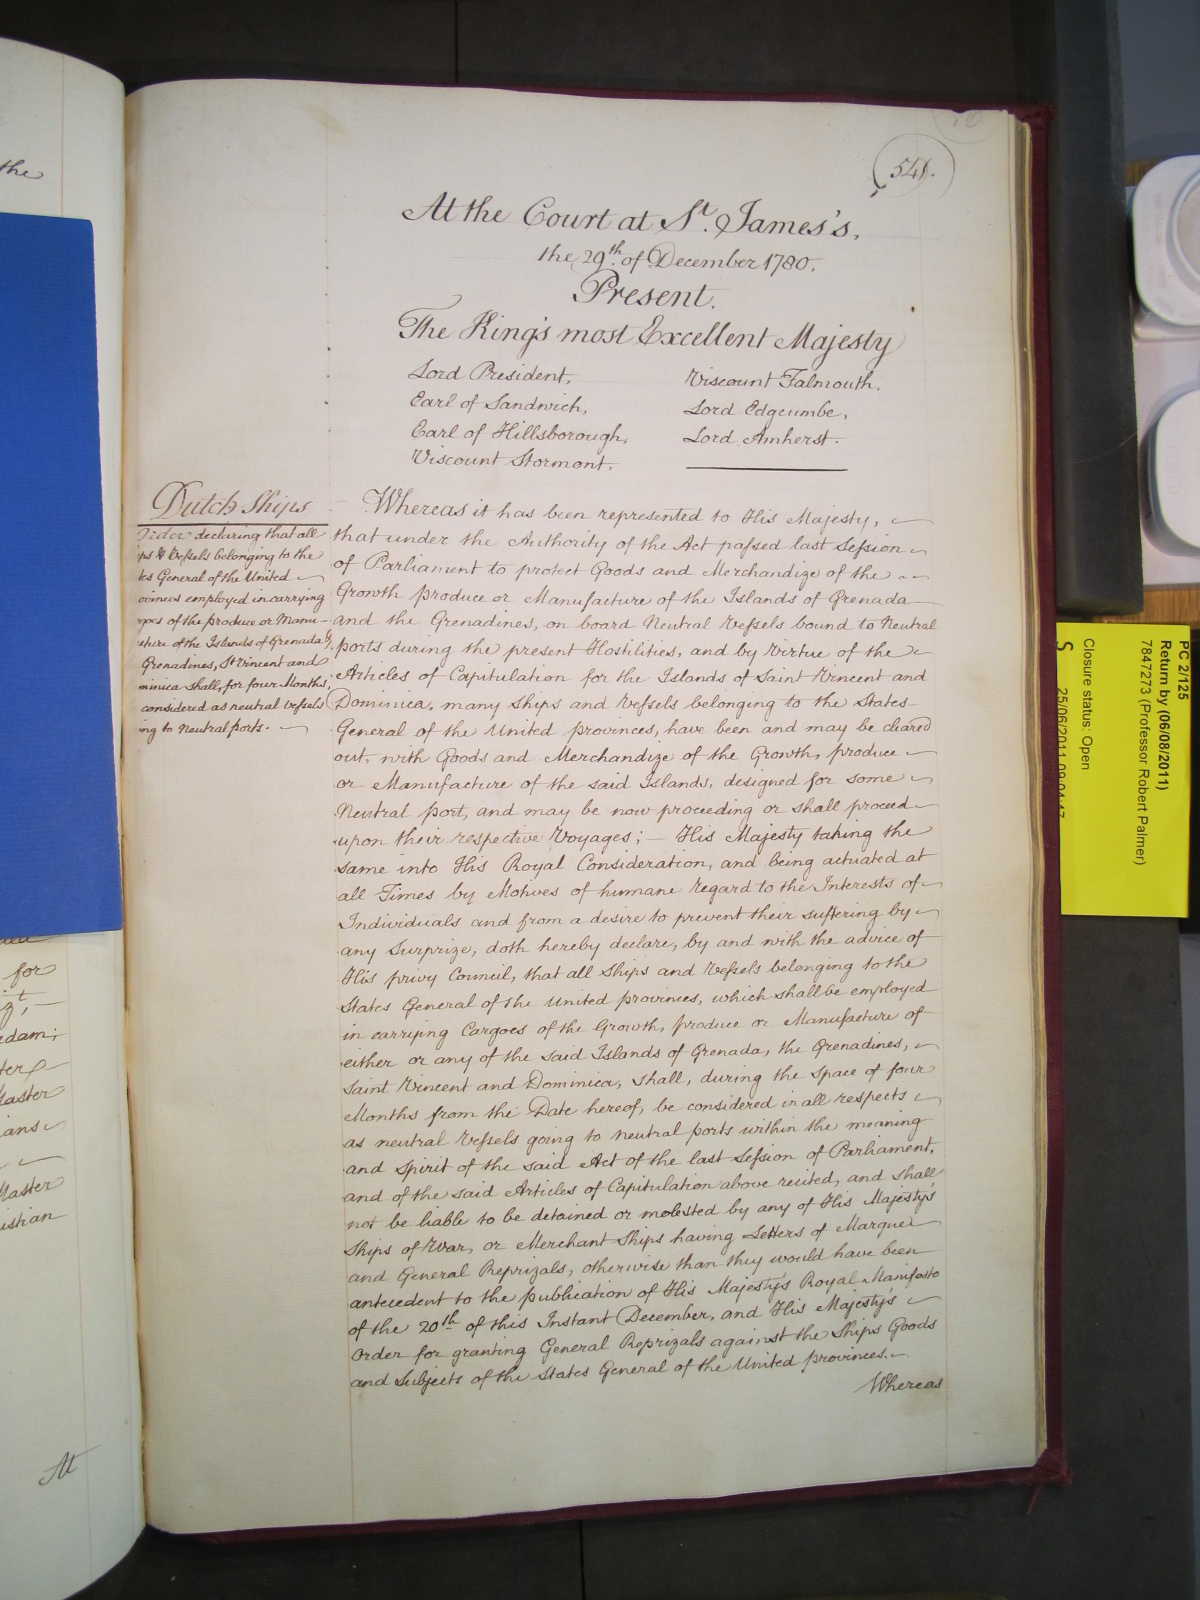 the
541.
At the Court at St. James's,
the 29th. of December 1780.
Present.
The King's most Excellent Majesty
Lord President,
Earl of Sandwich,
Earl of Hillsborough,
Viscount Stormont.
Viscount Falmouth,
Lord Edgcumbe,
Lord Amherst.
Dutch Ships
Order declaring that all
ps & Vessels belonging to the
tes General of the United
ovinces employed in carrying
goes of the produce or Manu-
cture of the Islands of Grenada, ye
Grenadines, St Vincent and
minica shall, for four Months,
considered as neutral Vessels
ing to Neutral ports.
Whereas it has been represented to His Majesty,
that under the Authority of the Act passed last Session
of Parliament to protect Goods and Merchandize of the
Growth produce or Manufacture of the Islands of Grenada
and the Grenadines, on board Neutral Vessels bound to Neutral
ports during the present Hostilities, and by Virtue of the
Articles of Capitulation for the Islands of Saint Vincent and
Dominica, many Ships and Vessels belonging to the States
General of the United provinces, have been and may be cleared
out, with Goods and Merchandize of the Growth, produce
or Manufacture of the said Islands, designed for some
Neutral port, and may be now proceeding or shall proceed
upon their respective Voyages; — His Majesty taking the
same into His Royal Consideration, and being actuated at
all Times by Motives of humane Regard to the Interests of
Individuals and from a desire to prevent their suffering by
any Surprize, doth hereby declare, by and with the advice of
His privy Council, that all Ships and Vessels belonging to the
States General of the United provinces, which shall be employed
in carrying Cargoes of the Growth, produce or Manufacture of
either or any of the said Islands of Grenada, the Grenadines,
Saint Vincent and Dominica, shall, during the space of four
Months from the Date hereof, be considered in all respects
as neutral Vessels going to neutral ports within the meaning
and spirit of the said Act of the last Session of Parliament,
and of the said Articles of Capitulation above recited, and shall
not be liable to be detained or molested by any of His Majesty's
Ships of War, or Merchant Ships having Letters of Marque
and General Reprizals, otherwise than they would have been
antecedent to the publication of His Majesty's Royal Manifesto
of the 20th of this Instant December, and His Majesty's
Order for granting General Reprizals against the Ships Goods
and Subjects of the States General of the United provinces.
Whereas
for
edam;
Master
ans
Master
istian
At
PC 2/125
Return by (06/08/2011)
7847273 (Professor Robert Palmer)
Closure status: Open
S
25/06/2011 09:04:17